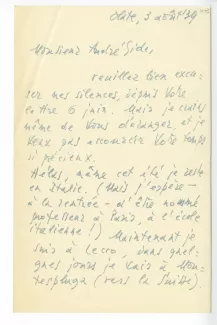 3 août 39
Monsieur André Gide,
veuillez bien excu-
ser mes silences, depuis Votre
lettre 6 juin. Mais je crains
même de Vous déranger, et je
veux pas Votre temps
si précieux.
Hélas, même cet été je reste
en Italie. (Mais j'espère -
à la rentrée - d'être nommé
professeur à Paris, à l'école
italienne!) Maintenant je
suis à Lecco, dans quel-
ques jours je vais à Mon-
tespluga (vers la Suisse).